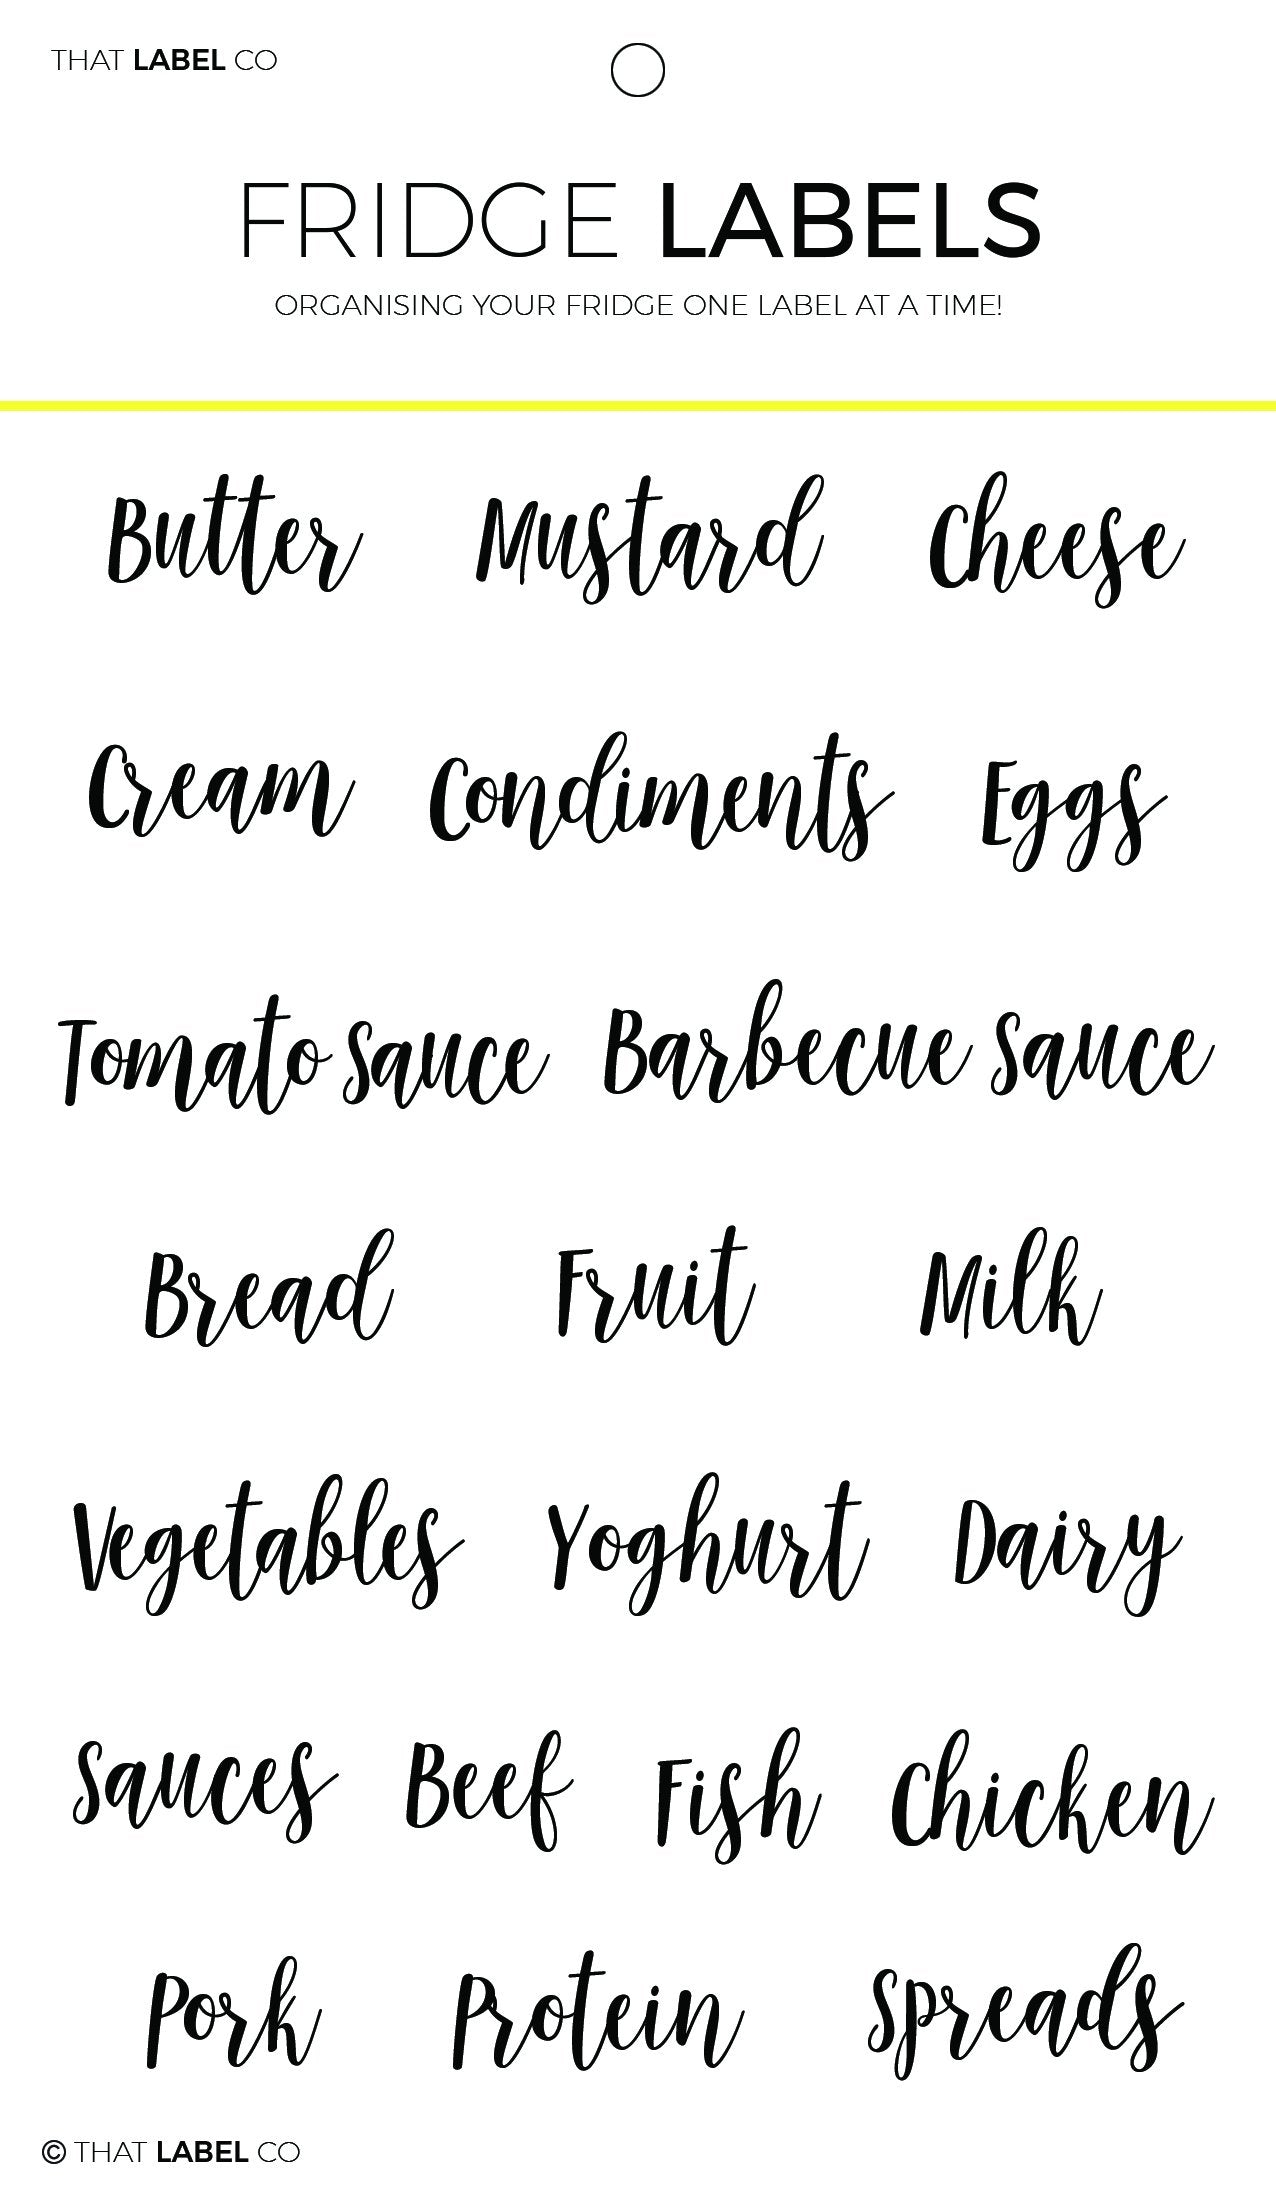 THAT LABEL CO
FRIDGE LABELS
ORGANISING YOUR FRIDGE ONE LABEL AT A TIME!
Butter Mustard Cheese
Cream Condiments Eggs
Tomato Sauce Barbecue Sauce
Bread Fruit Milk
Vegetables Yoghurt Dairy
Sauces Beef Fish Chicken
Pork Protein Spreads
© THAT LABEL CO